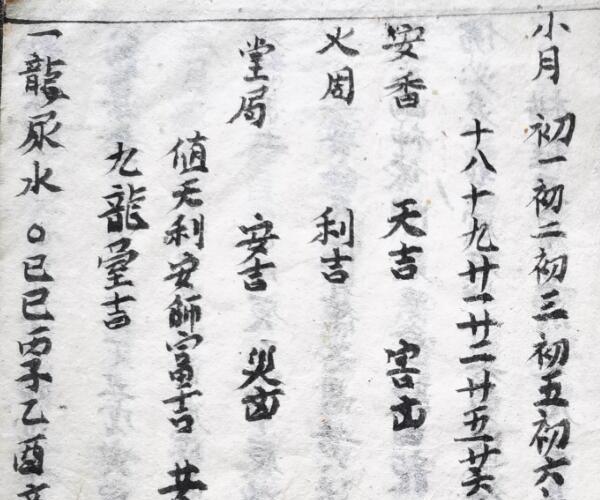 小月 初一初二初三初五初六
十八十九廿一廿二廿五廿六
安香 天吉 害凶
火周 利吉
堂局 安吉 災凶
值天利安師富吉
九龍堂吉
一龍尿水 〇己巳丙子乙酉